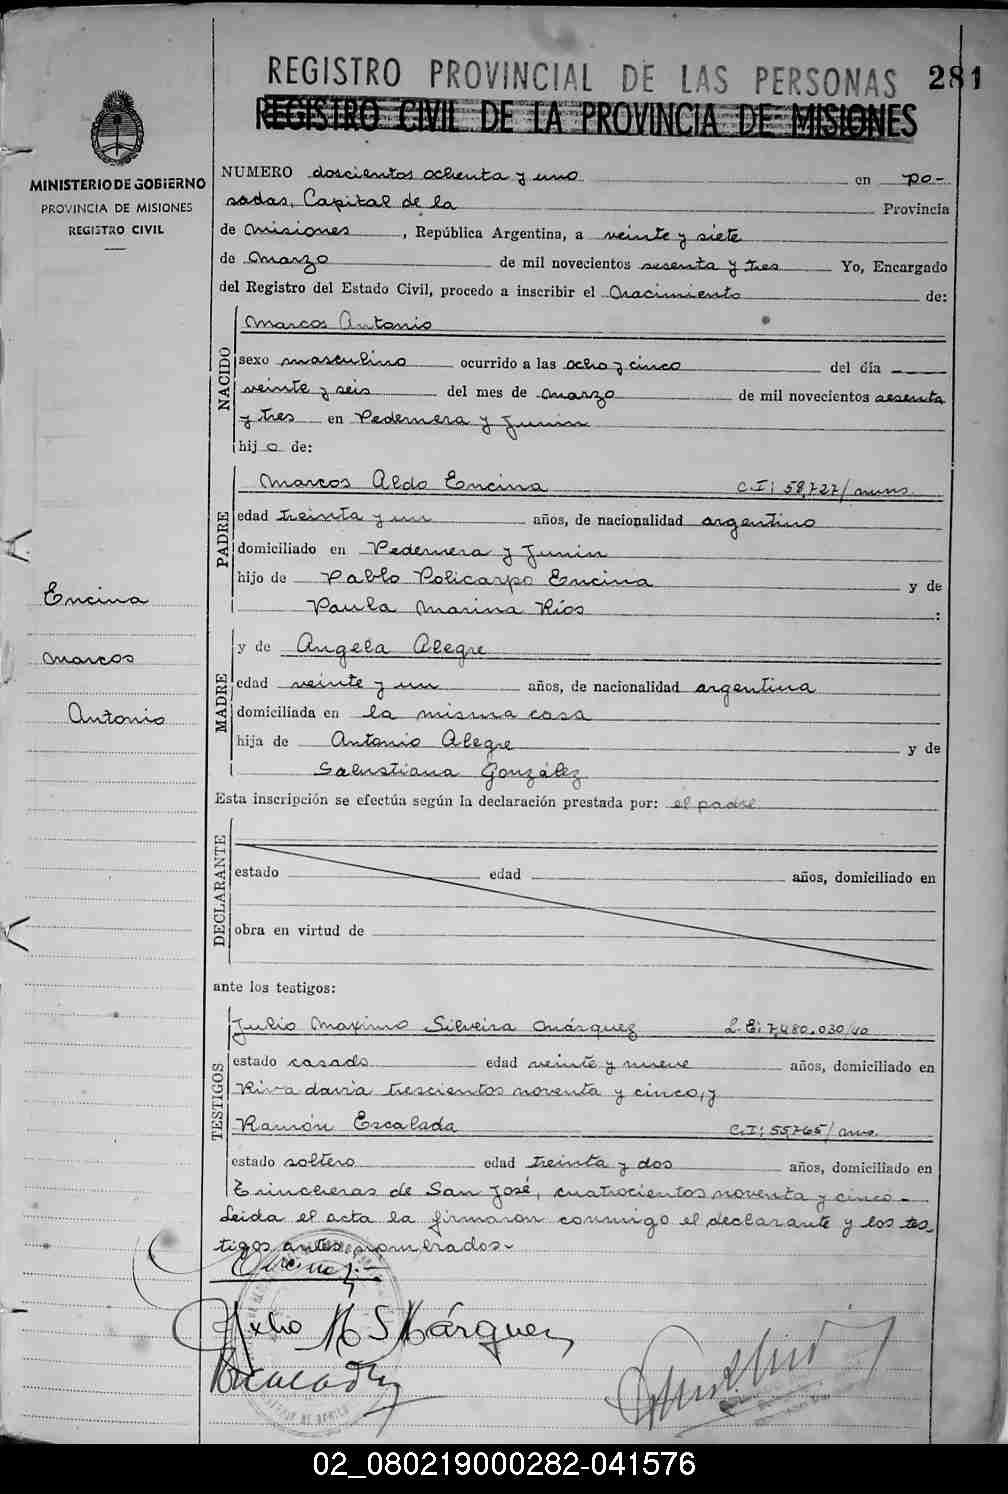 REGISTRO PROVINCIAL DE LAS PERSONAS 281
REGISTRO CIVIL DE LA PROVINCIA DE MISIONES
MINISTERIO DE GOBIERNO
PROVINCIA DE MISIONES
REGISTRO CIVIL
NUMERO doscientos ochenta y uno en Po-
sadas, Capital de la Provincia
de Misiones, República Argentina, a veinte y siete
de Marzo de mil novecientos sesenta y tres Yo, Encargado
del Registro del Estado Civil, procedo a inscribir el Nacimiento de:
NACIDO
Marcos Antonio
sexo masculino ocurrido a las ocho y cinco del día
veinte y seis del mes de marzo de mil novecientos sesenta
y tres en Pedernera y Junin
hijo de:
PADRE
Marcos Aldo Encina C.I: 58,727/mnes.
edad treinta y un años, de nacionalidad argentino
domiciliado en Pedernera y Junin
hijo de Pablo Policarpo Encina y de
Paula Marina Ríos :
Encina
Marcos
Antonio
MADRE
y de Angela Alegre
edad veinte y un años, de nacionalidad argentina
domiciliada en la misma casa
hija de Antonio Alegre y de
Salustiana González
Esta inscripción se efectúa según la declaración prestada por: el padre
DECLARANTE
estado edad años, domiciliado en
obra en virtud de
ante los testigos:
TESTIGOS
Julio Maximo Silveira Márquez L.E: 7,480.030/40
estado casado edad veinte y nueve años, domiciliado en
Rivadavia trescientos noventa y cinco, y
Ramón Escalada C.I: 55,765/mns.
estado soltero edad treinta y dos años, domiciliado en
Trincheras de San José, cuatrocientos noventa y cinco -
Leida el acta la firmaron conmigo el declarante y los tes-
tigos antes nombrados-
Encina
Julio M S Márquez
Escalada
02_080219000282-041576